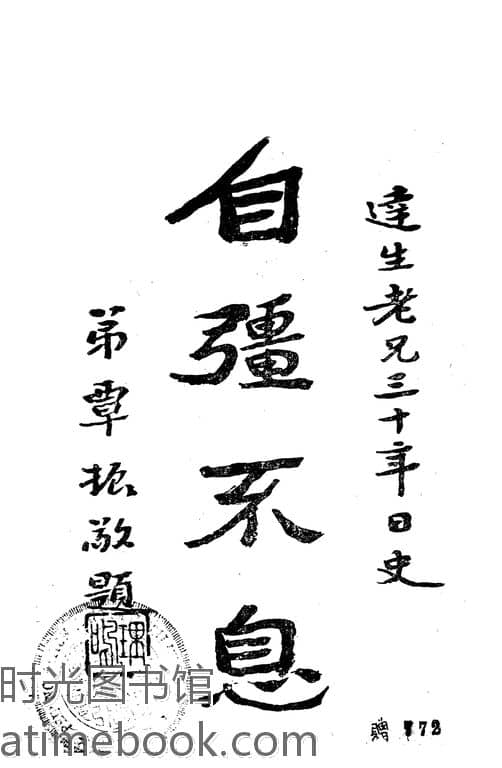 達生老兄三十年日史
自彊不息
弟覃振敬題
时光图书馆
atimebook.com
贈 772